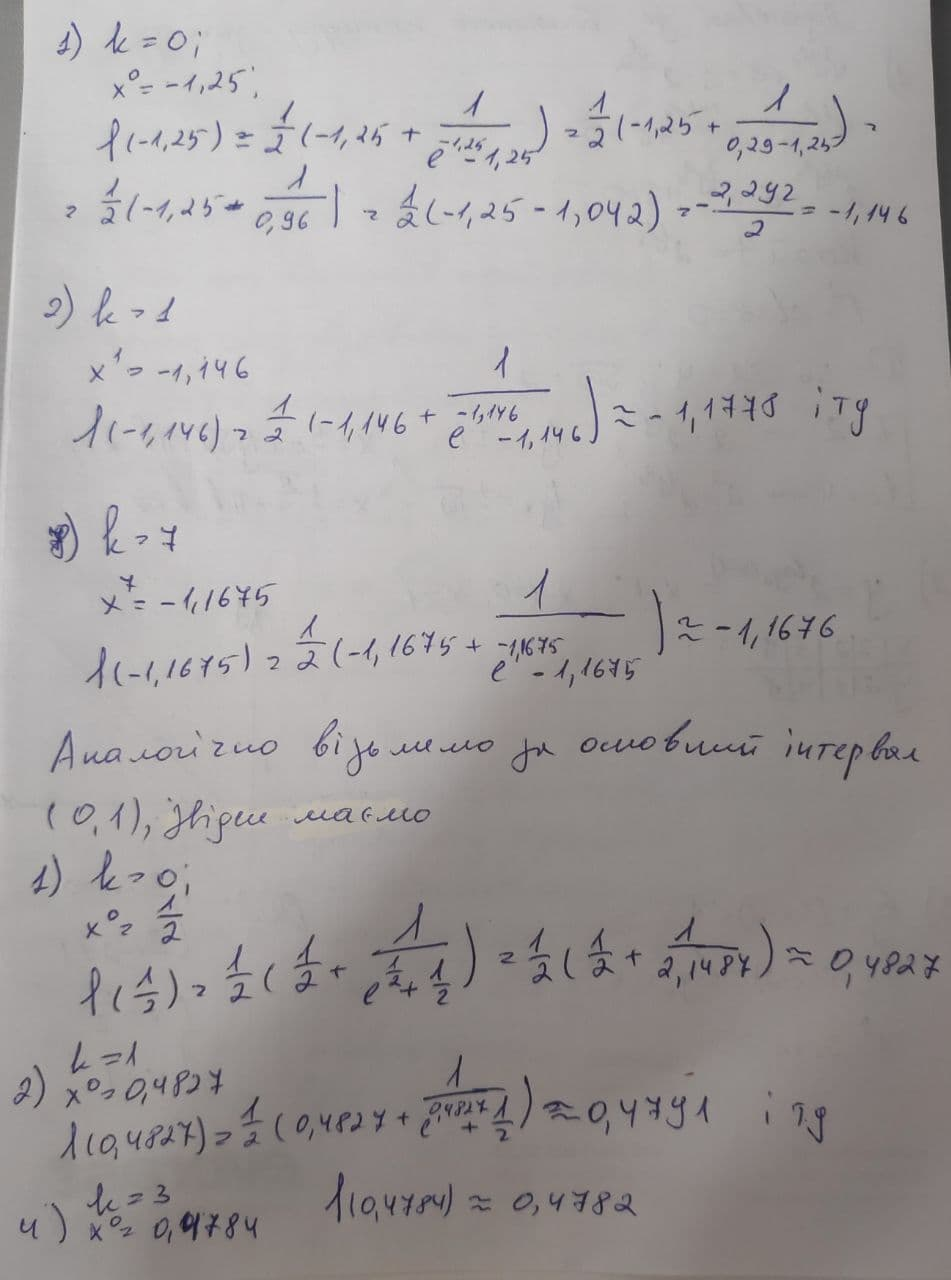 1) k = 0;
x⁰ = -1,25;
f(-1,25) = 1/2 (-1,25 + 1/(e^(-1,25) - 1,25)) = 1/2 (-1,25 + 1/(0,29-1,25)) =
= 1/2 (-1,25 - 1/0,96) = 1/2 (-1,25 - 1,042) = -2,292/2 = -1,146
2) k = 1
x¹ = -1,146
f(-1,146) = 1/2 (-1,146 + 1/(e^(-1,146) - 1,146)) ≈ -1,1778 і тд
) k = 7
x⁷ = -1,1675
f(-1,1675) = 1/2 (-1,1675 + 1/(e^(-1,1675) - 1,1675)) ≈ -1,1676
Аналогічно візьмемо за основний інтервал
(0,1), звідки маємо
1) k = 0;
x⁰ = 1/2
f(1/2) = 1/2 (1/2 + 1/(e^(1/2) + 1/2)) = 1/2 (1/2 + 1/2,1487) ≈ 0,4827
2) k = 1
x⁰ = 0,4827
f(0,4827) = 1/2 (0,4827 + 1/(e^(0,4827) + 1/2)) ≈ 0,4791 і тд
4) k = 3
x⁰ = 0,4784 f(0,4784) ≈ 0,4782